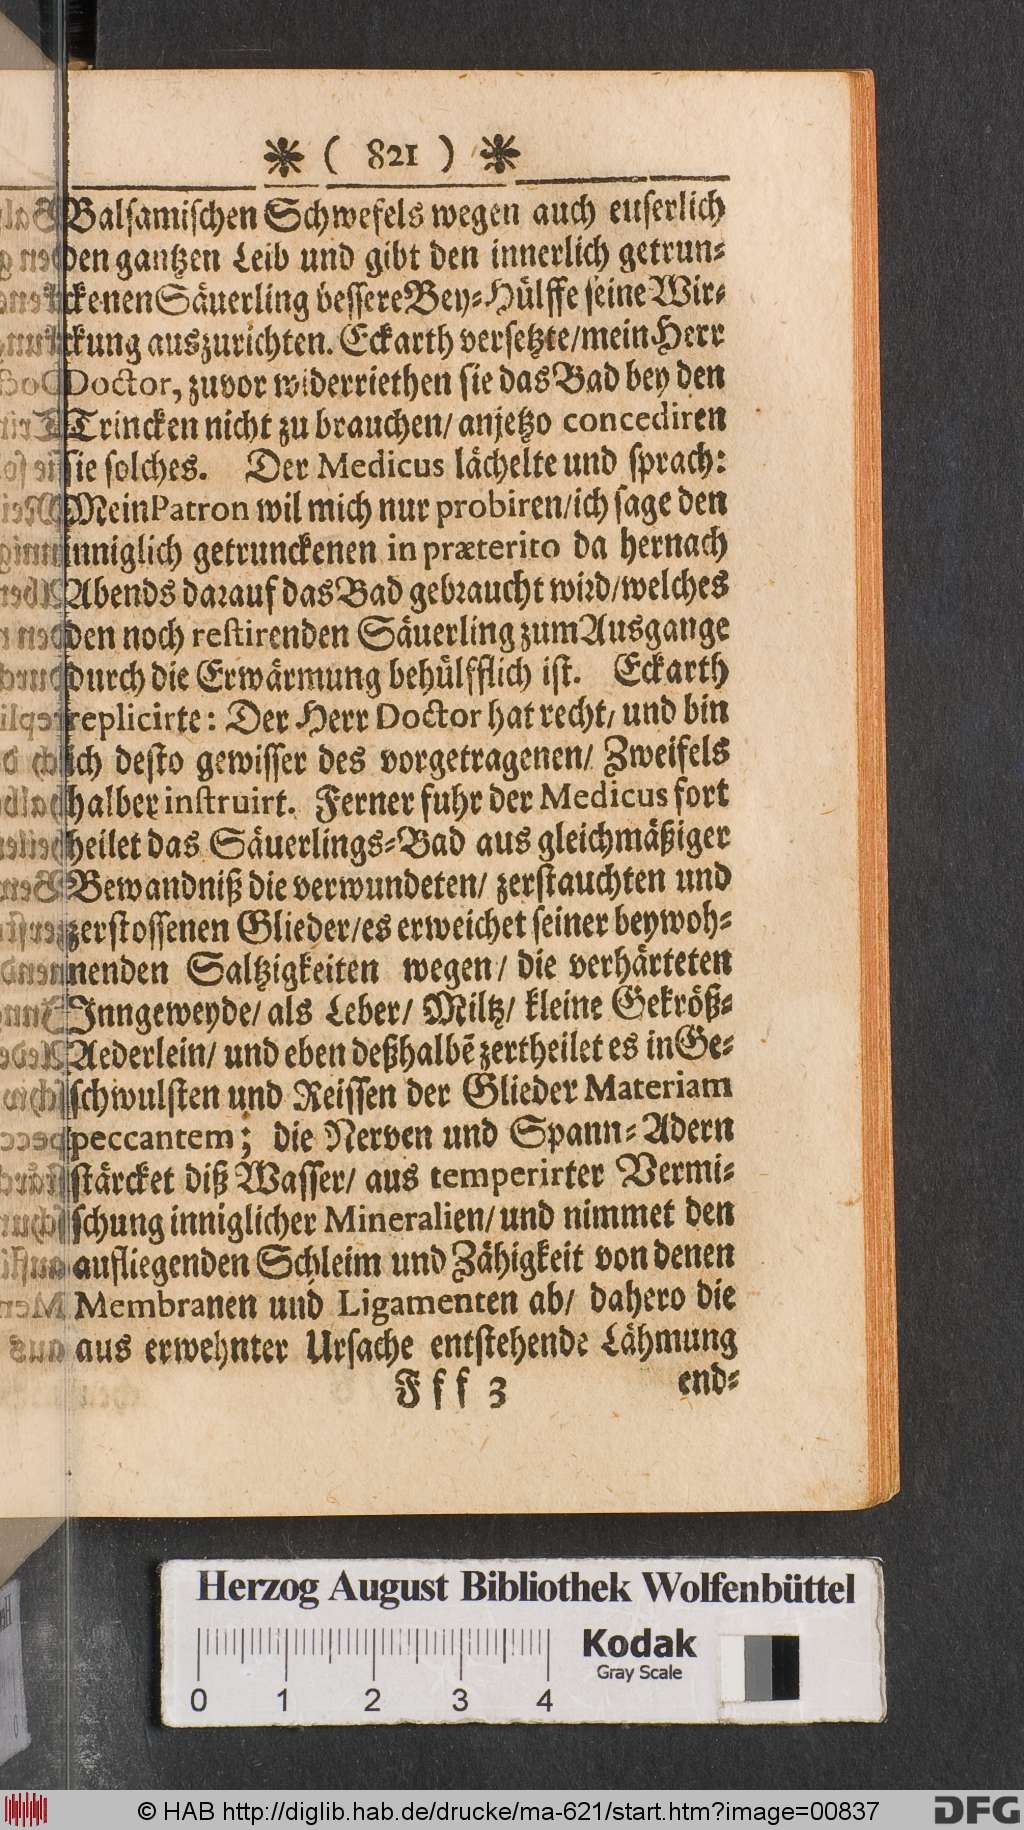 * ( 821 ) *
Balsamischen Schwefels wegen auch euserlich
den gantzen Leib und gibt den innerlich getrun⸗
ckenen Säuerling bessere Bey⸗Hülffe seine Wir⸗
ckung auszurichten. Eckarth versetzte/ mein Herr
Doctor, zuvor widerriethen sie das Bad bey den
Trincken nicht zu brauchen/ anjetzo concediren
sie solches. Der Medicus lächelte und sprach:
Mein Patron wil mich nur probiren/ ich sage den
inniglich getrunckenen in præterito da hernach
Abends darauf das Bad gebraucht wird/ welches
den noch restirenden Säuerling zum Ausgange
durch die Erwärmung behülfflich ist. Eckarth
replicirte: Der Herr Doctor hat recht/ und bin
ich desto gewisser des vorgetragenen/ Zweifels
halber instruirt. Ferner fuhr der Medicus fort
heilet das Säuerlings⸗Bad aus gleichmäßiger
Bewandniß die verwundeten/ zerstauchten und
zerstossenen Glieder/ es erweichet seiner beywoh⸗
nenden Saltzigkeiten wegen/ die verhärteten
Inngeweyde/ als Leber/ Miltz/ kleine Gekröß⸗
Aederlein/ und eben deßhalbẽ zertheilet es in Ge⸗
schwulsten und Reissen der Glieder Materiam
peccantem; die Nerven und Spann⸗Adern
stärcket diß Wasser/ aus temperirter Vermi⸗
schung inniglicher Mineralien/ und nimmet den
aufliegenden Schleim und Zähigkeit von denen
Membranen und Ligamenten ab/ dahero die
aus erwehnter Ursache entstehende Lähmung
Fff 3 end⸗
Herzog August Bibliothek Wolfenbüttel
Kodak
Gray Scale
0 1 2 3 4
© HAB http://diglib.hab.de/drucke/ma-621/start.htm?image=00837
DFG